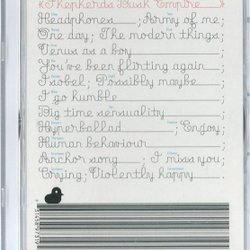 Shepherds Bush Empire
Headphones ; Army of me;
One day; The modern things
Venus as a boy
You've been flirting again
Isobel; Possibly maybe
I go humble
Big time sensuality
Hyperballad ; Enjoy;
Human behaviour ;
Anchor song ; I miss you;
Crying; Violently happy